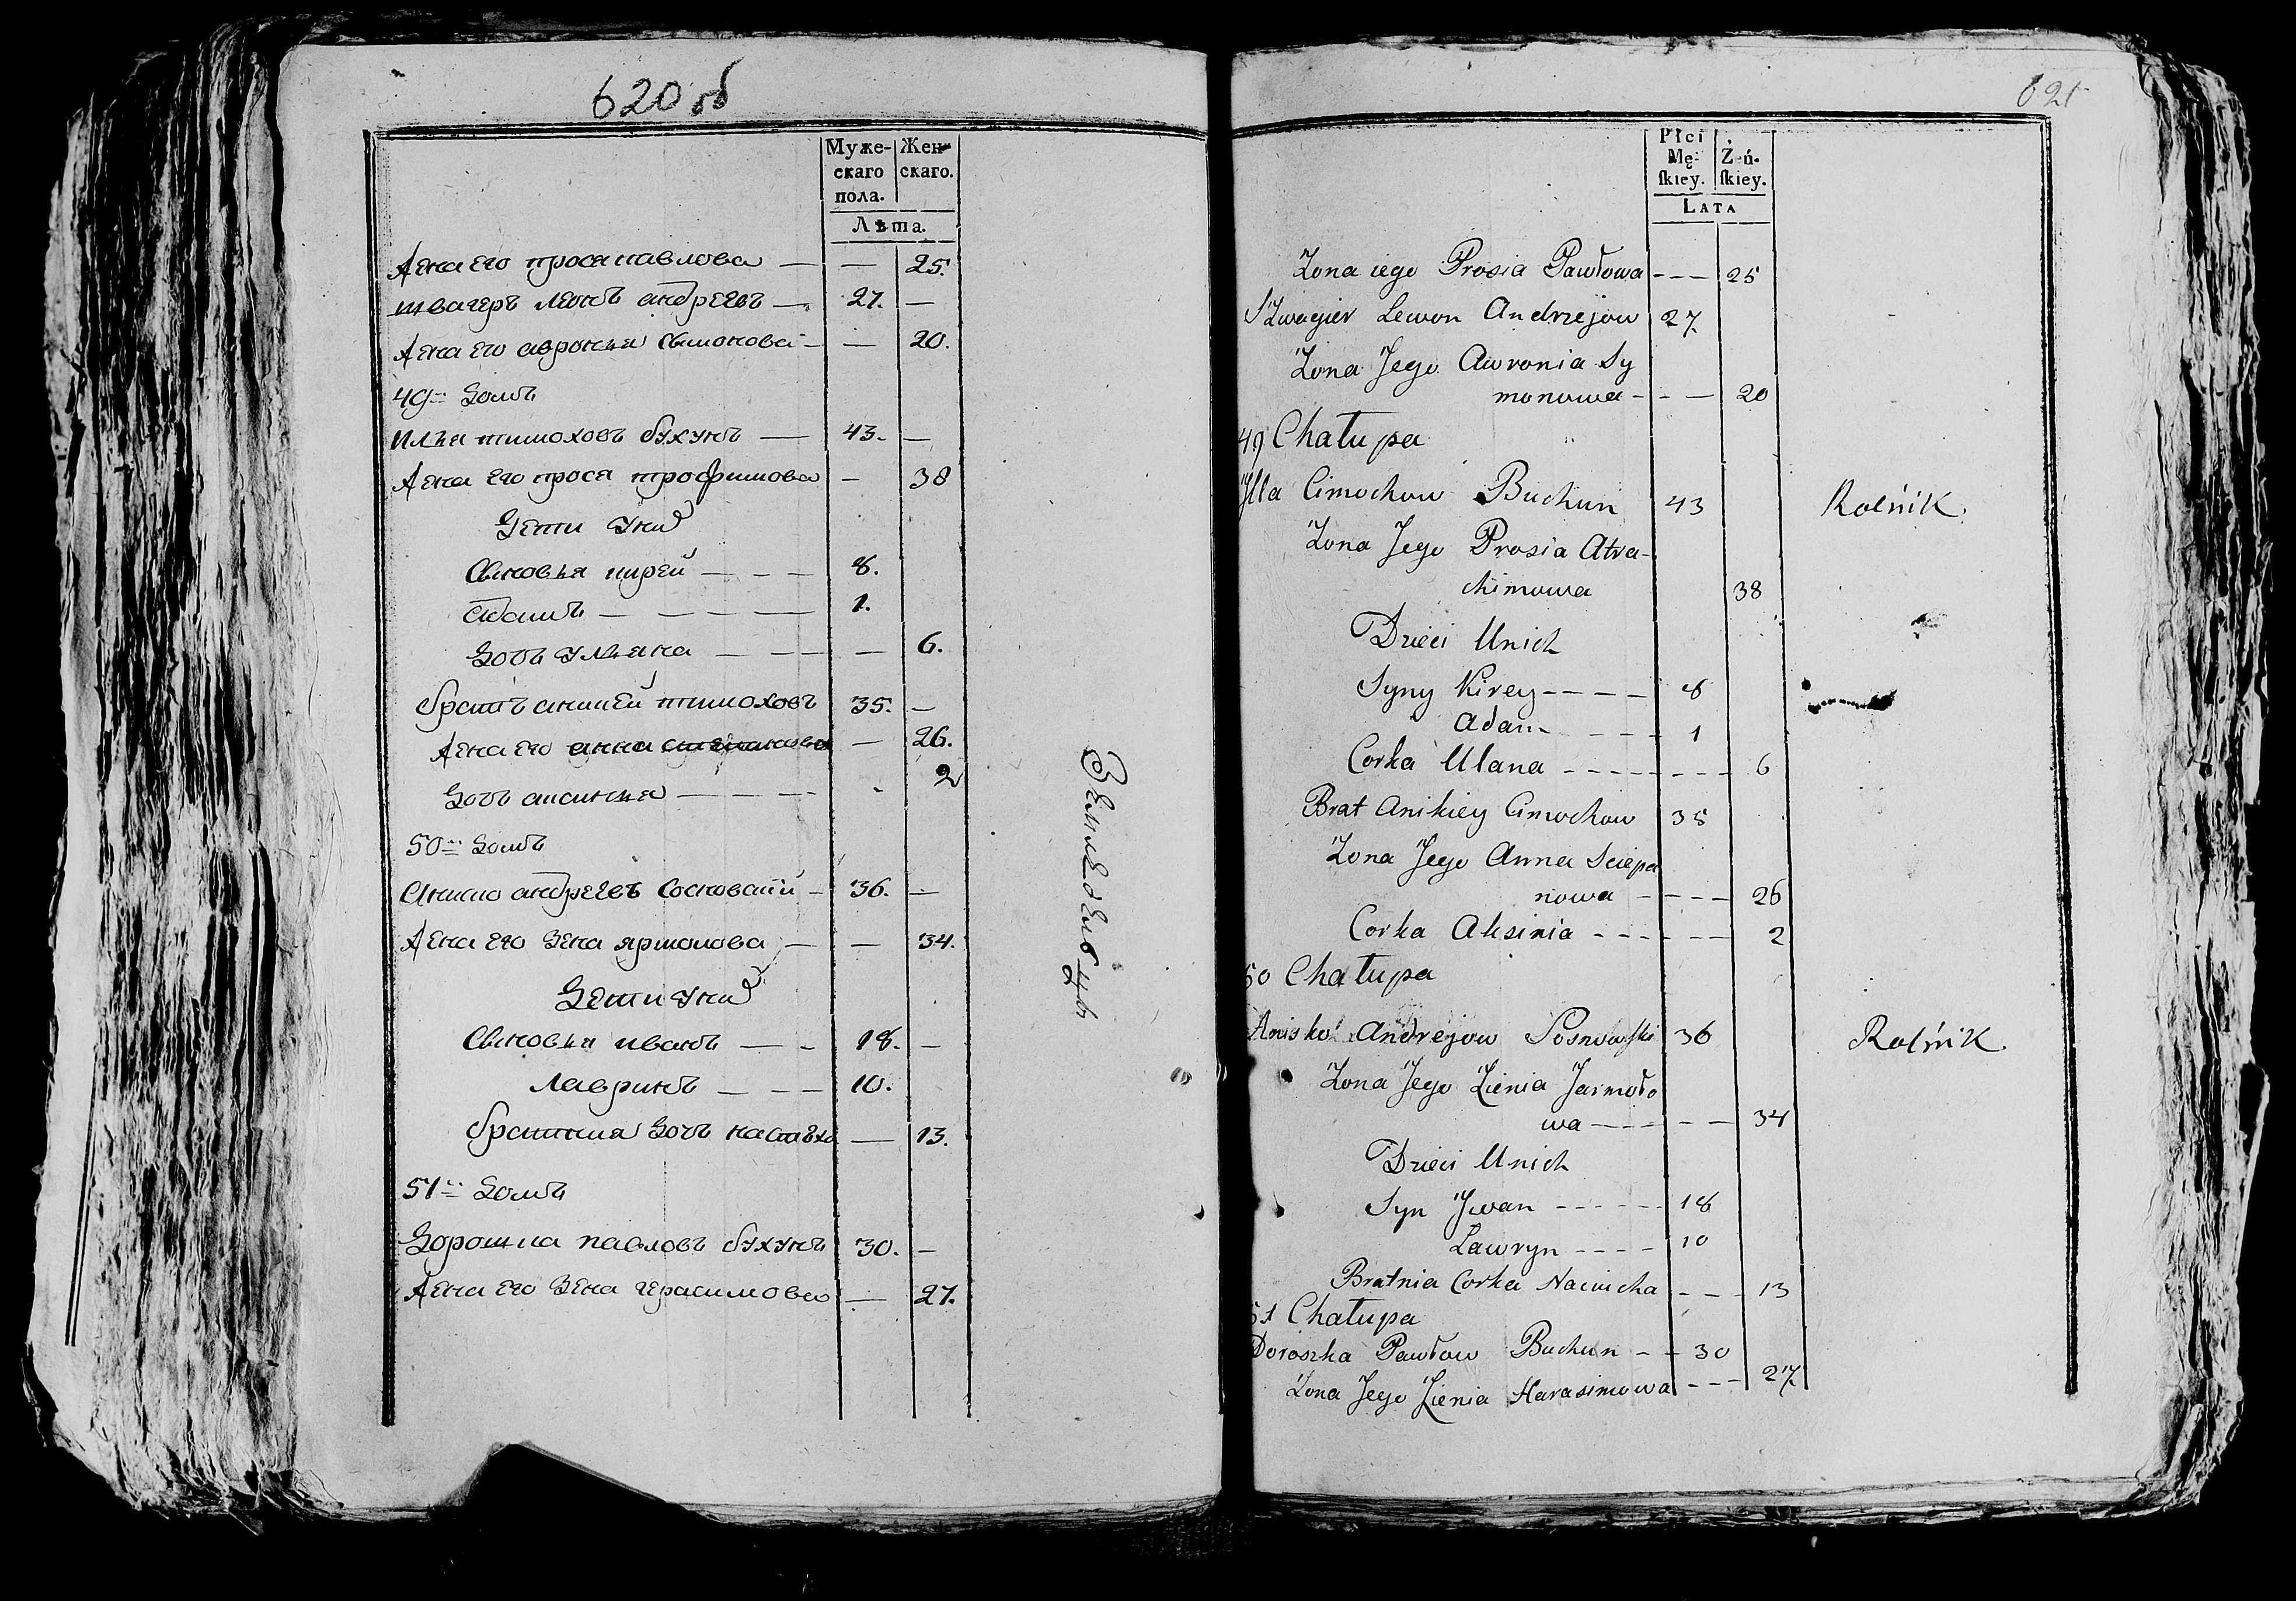 620 об
Муже-
скаго
пола.
Жен-
скаго.
Лѣта.
Жена его прося павлова — — 25.
швагеръ леонъ андреевъ — 27. —
Жена его авронья сымонова — — 20.
49й Домъ
илья тимоховъ бухунъ — 43. —
Жена его прося трофимова — 38
Дети у них
Сыновья кирей — — — 8.
адамъ — — — — 1.
Дочь ульяна — — — — 6.
братъ аникей тимоховъ 35. —
Жена его анна степанова — 26.
Дочь аксинья — — — - 2
50й Домъ
Аниско андреевъ Сосновский — 36. —
Жена его Зена ярмолова — — 34.
Дети у них
Сыновья иванъ — - 18. —
Лавринъ — — — 10.
братния Дочь настѣха — 13.
51й Домъ
Дорошка павловъ бухунъ 30. —
Жена его Зена герасимова — 27.
Земледелецъ
621
Płci
Mę-
ſkiey.
Żeń-
ſkiey.
LATA
Żona iego Prosia Pawłowa - - — 25
Szwagier Lewon Andrzejow 27
Żona Jego Awronia Sy
monowa - - — 20
49 Chałupa
Jlla Cimochow Buchun 43 Rolnik.
Żona Jego Prosia Atra-
chimowa 38
Dzieci Unich
Syny Kirey - - - - 8
Adam - - - - 1
Corka Ulana - - - - - - - - 6
Brat Anikiey Cimochow 35
Żona Jego Anna Sciepa
nowa - - - - 26
Corka Aksinia - - - - - — 2
50 Chałupa
Anisko Andrejow Sosnowſki 36 Rolnik
Żona Jego Zienia Jarmoło
wa - - - - - — 34
Dzieci Unich
Syn Jwan - - - - - - 18
Lawryn - - - - 10
Bratnia Corka Naścicha - - - 13
51 Chałupa
Doroszka Pawłow Buchun - - 30
Żona Jego Zienia Harasimowa - - - 27